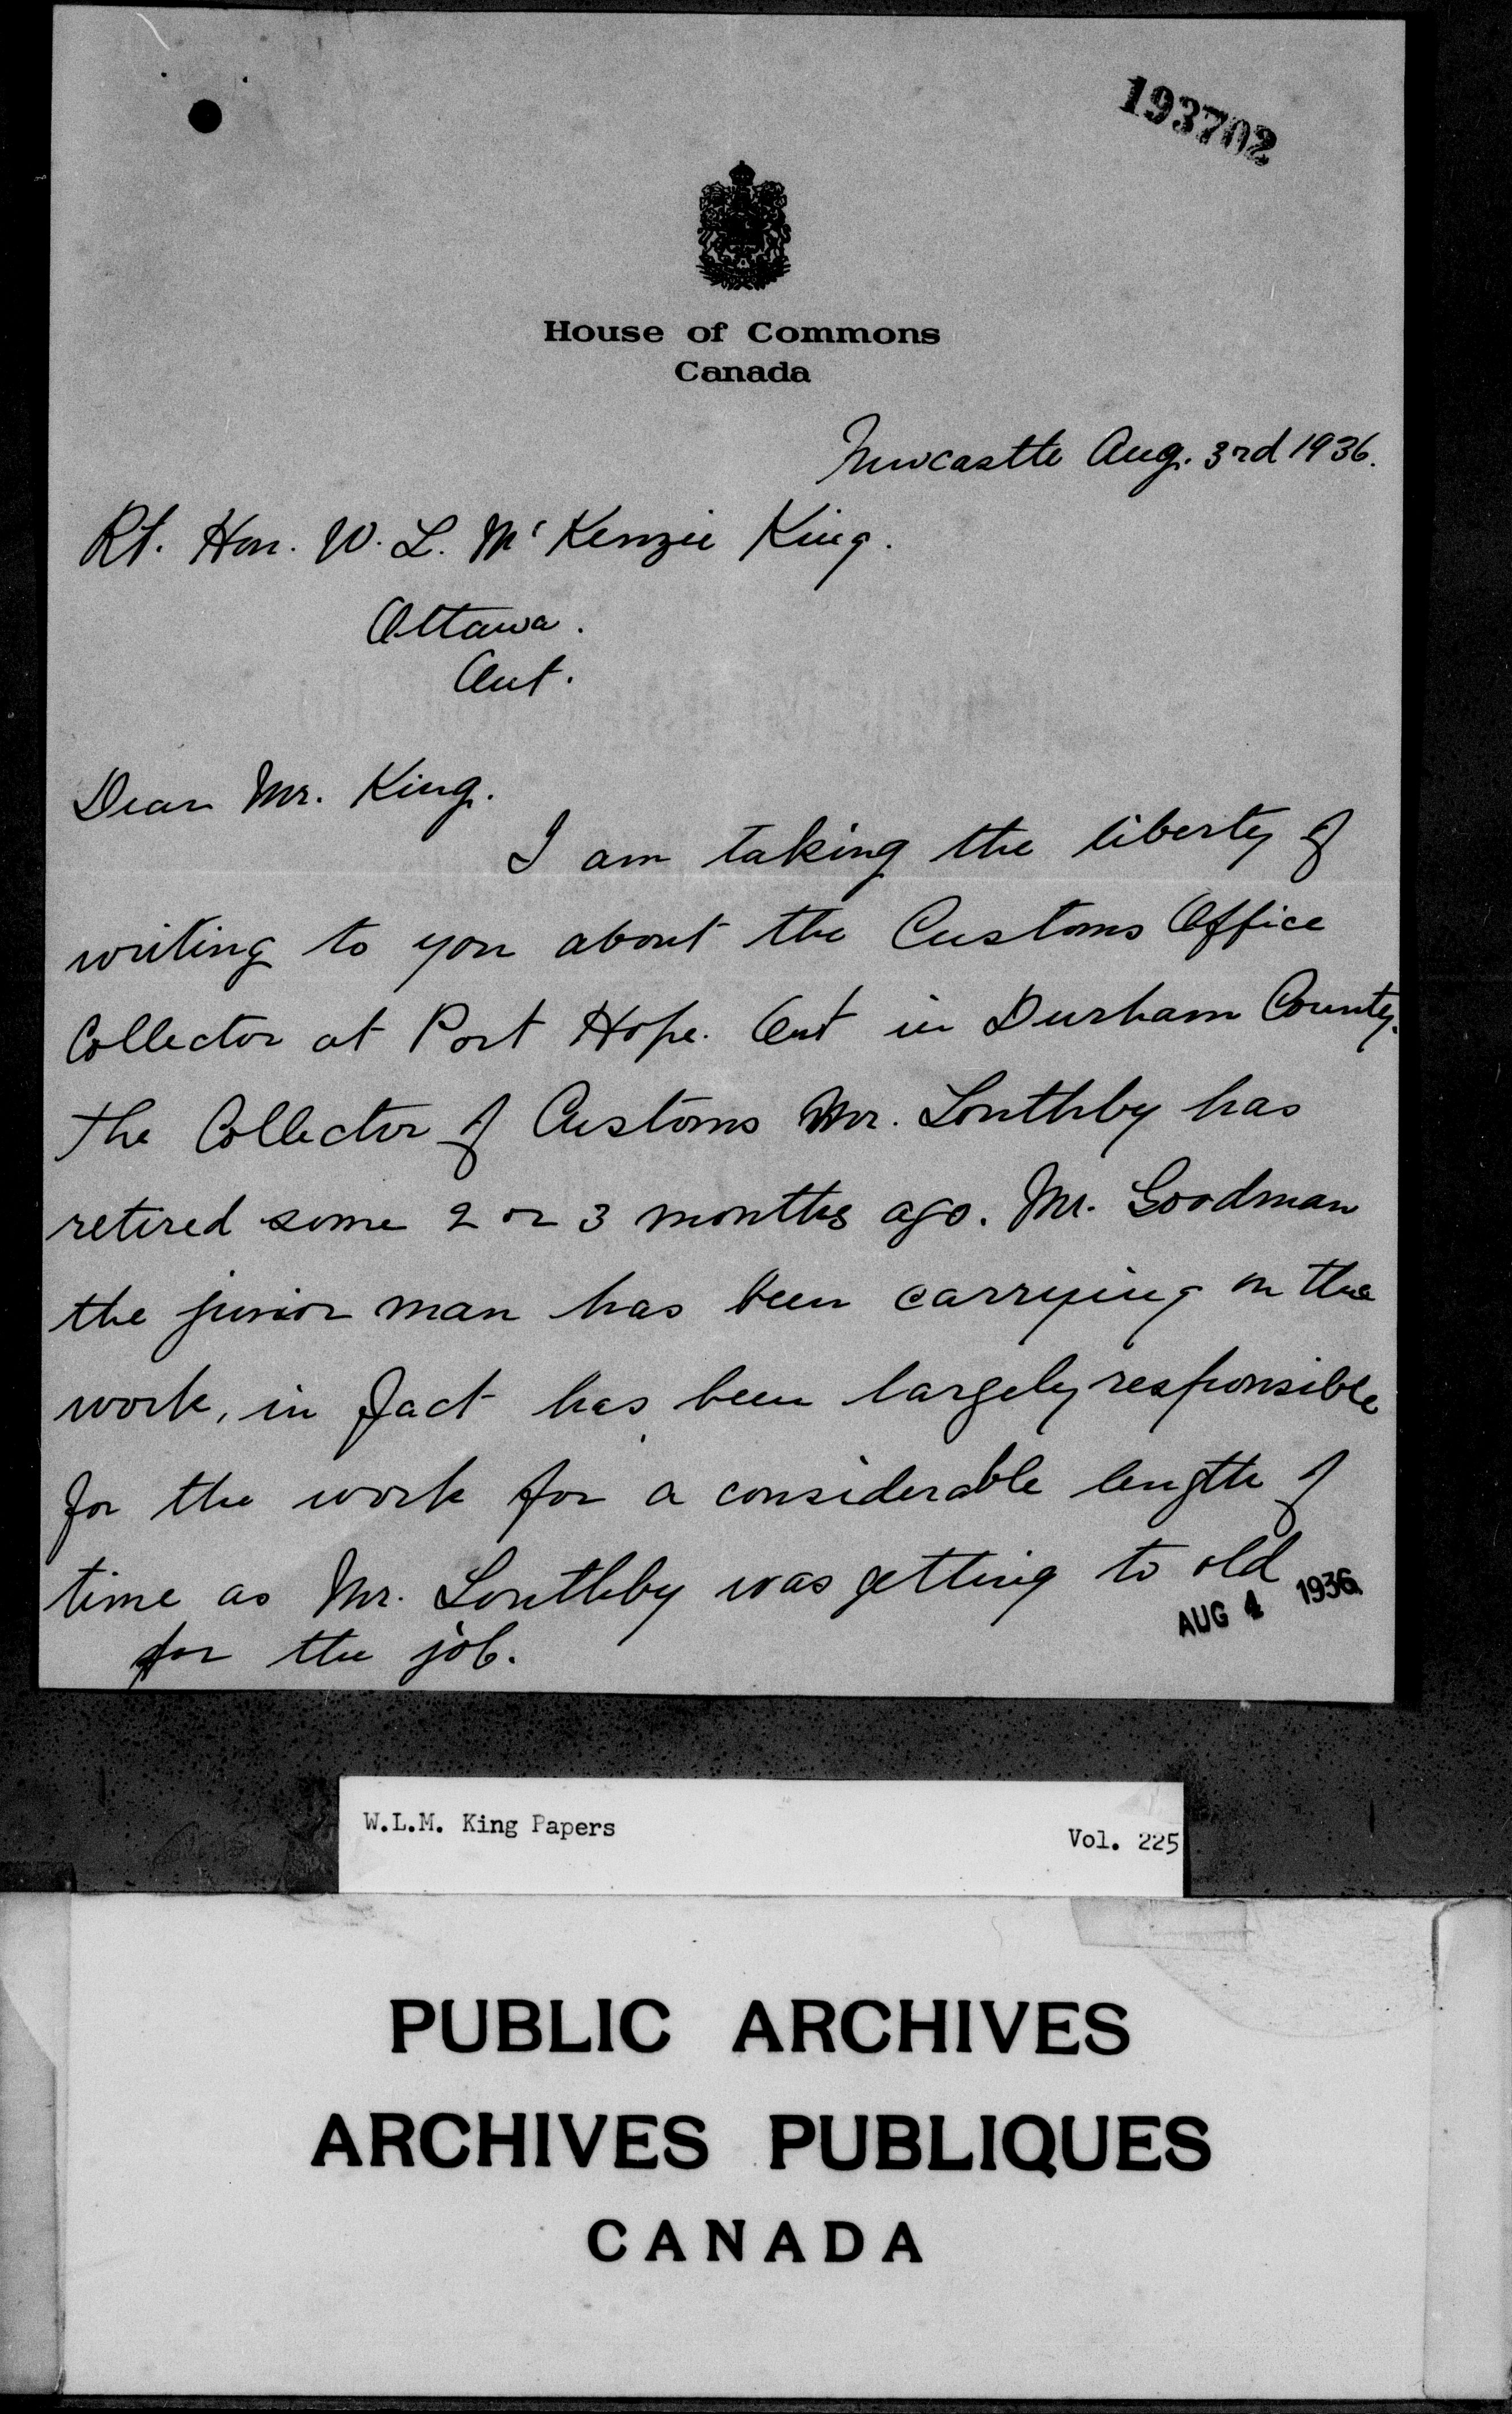 193702
House of Commons
Canada
Newcastle Aug. 3rd 1936.
Rt. Hon. W. L. Mc Kenzie King.
Ottawa.
Ont.
Dear Mr. King.
I am taking the liberty of
writing to you about the Customs Office
Collector at Port Hope. Ont in Durham County.
The Collector of Customs Mr. has
retired some 2 or 3 months ago. Mr. Goodman
the junior man has been carrying on the
work, in fact has been largely responsible
for the work for a considerable length of
time as Mr. was getting to old
for the job.
AUG 4 1936
W.L.M. King Papers
Vol. 225
PUBLIC ARCHIVES
ARCHIVES PUBLIQUES
CANADA